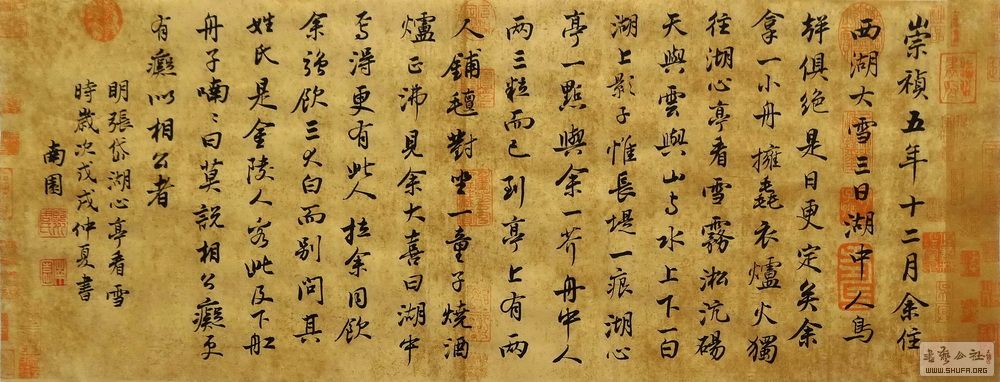 崇禎五年十二月余住
西湖大雪三日湖中人鳥
聲俱絕是日更定矣余
拿一小舟擁毳衣爐火獨
往湖心亭看雪霧淞沆碭
天與雲與山與水上下一白
湖上影子惟長堤一痕湖心
亭一點與余一芥舟中人
兩三粒而已到亭上有兩
人鋪氈對坐一童子燒酒
爐正沸見余大喜曰湖中
焉得更有此人拉余同飲
余強飲三大白而別問其
姓氏是金陵人客此及下船
舟子喃〻曰莫說相公癡更
有癡似相公者
明張岱湖心亭看雪
時歲次戊戌仲夏書
南園
書藝公社
WWW.SHUFA.ORG